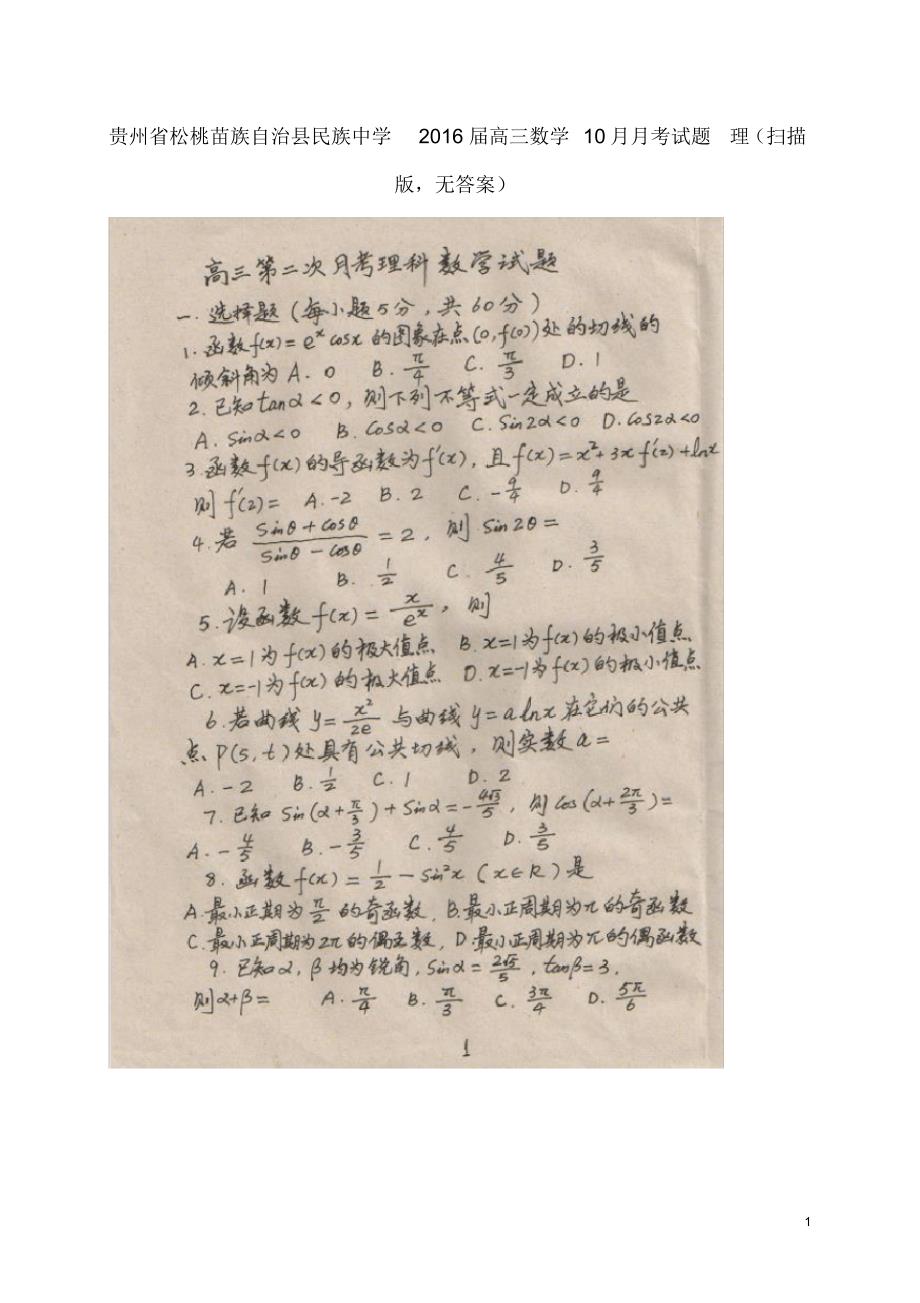 贵州省松桃苗族自治县民族中学 2016届高三数学 10月月考试题 理(扫描
版,无答案)
高三第二次月考理科数学试题
一.选择题(每小题5分,共60分)
1.函数f(x)=eˣcosx的图象在点(0,f(0))处的切线的
倾斜角为 A. 0 B. π/4 C. π/3 D. 1
2.已知tanα<0,则下列不等式一定成立的是
A. sinα<0 B. cosα<0 C. sin2α<0 D. cos2α<0
3.函数f(x)的导函数为f′(x),且f(x)=x²+3xf′(2)+lnx
则f′(2)= A. -2 B. 2 C. -9/4 D. 9/4
4.若 (sinθ+cosθ)/(sinθ-cosθ)=2,则sin2θ=
A. 1 B. 1/2 C. 4/5 D. 3/5
5.设函数f(x)=x/eˣ,则
A. x=1为f(x)的极大值点 B. x=1为f(x)的极小值点
C. x=-1为f(x)的极大值点 D. x=-1为f(x)的极小值点
6.若曲线y=x²/2e与曲线y=alnx在它们的公共
点P(s,t)处具有公共切线,则实数a=
A. -2 B. 1/2 C. 1 D. 2
7.已知sin(α+π/3)+sinα=-4√3/5,则cos(α+2π/3)=
A. -4/5 B. -3/5 C. 4/5 D. 3/5
8.函数f(x)=1/2-sin²x(x∈R)是
A.最小正期为π/2的奇函数, B.最小正周期为π的奇函数
C.最小正周期为2π的偶函数, D.最小正周期为π的偶函数
9.已知α,β均为锐角,sinα=2√5/5,tanβ=3,
则α+β= A. π/4 B. π/3 C. 3π/4 D. 5π/6
1
1